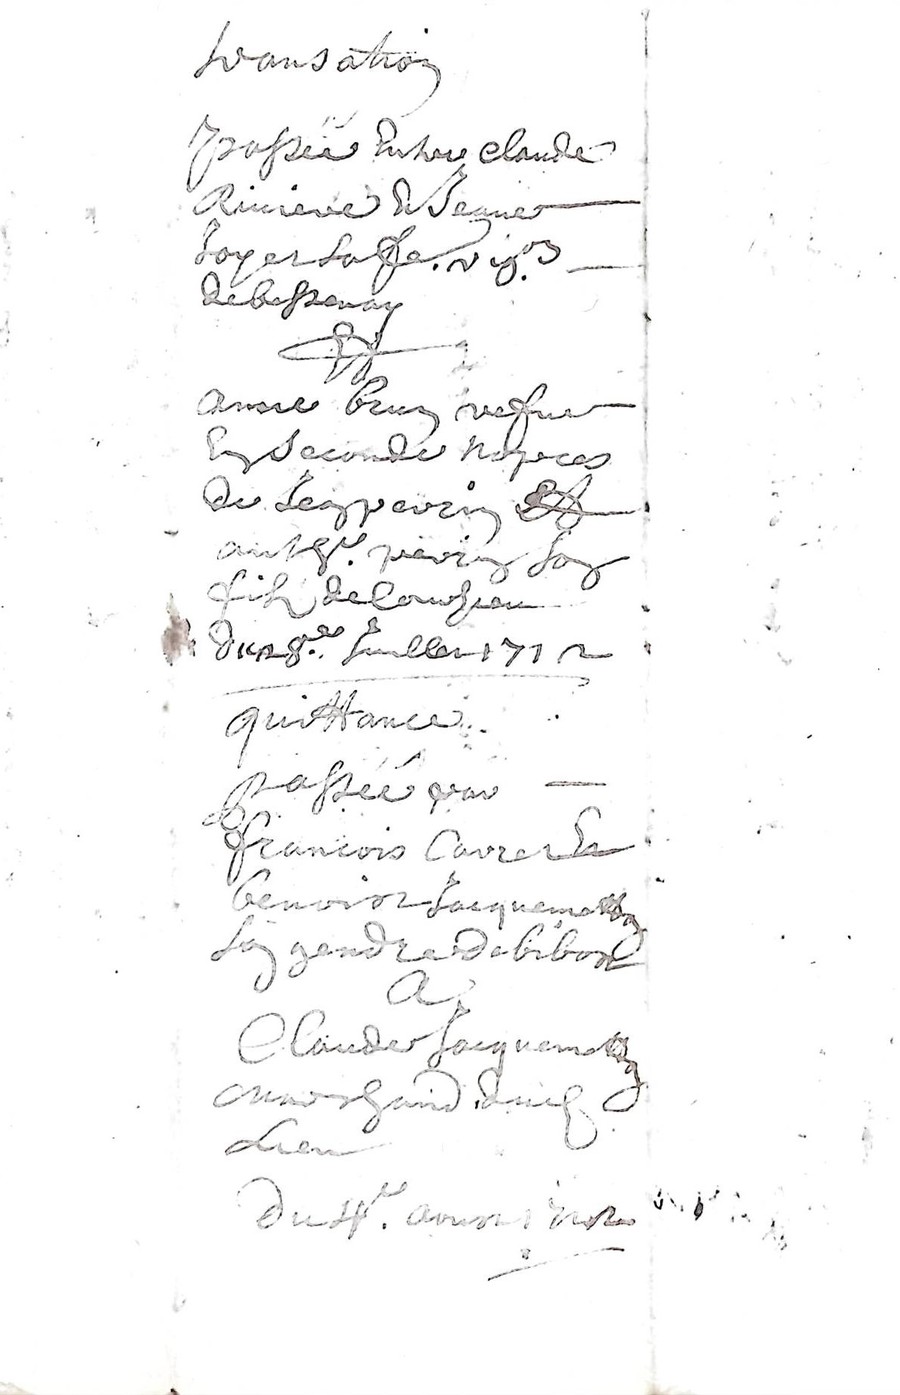 transation
passée Entre claude
Riviere et Jeanne
Loyer sa fe. vig.ons
de bessenay
Et
anne brun vefue
En seconde nopces
de Jean perrin Et
anthe. perrin son
filz de Courzieu
du 28.e Juillet 1712
quittance
passée par
francois Carret Et
benoist Jacquemetton
son gendre de bibost
A
Claude Jacquemetton
marchand dud.
Lieu
Du 4.e aoust 1712